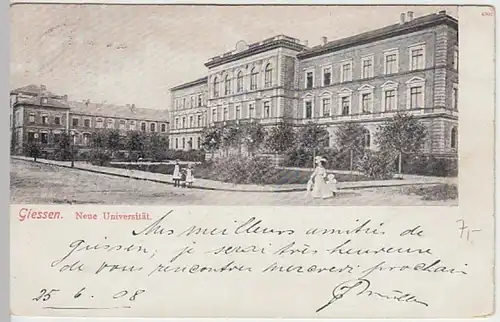 Giessen. Neue Universität.
Mes meilleurs amitiés de
Giessen; je serai très heureuse
de vous rencontrer mercredi prochain
25 6 08
7,-